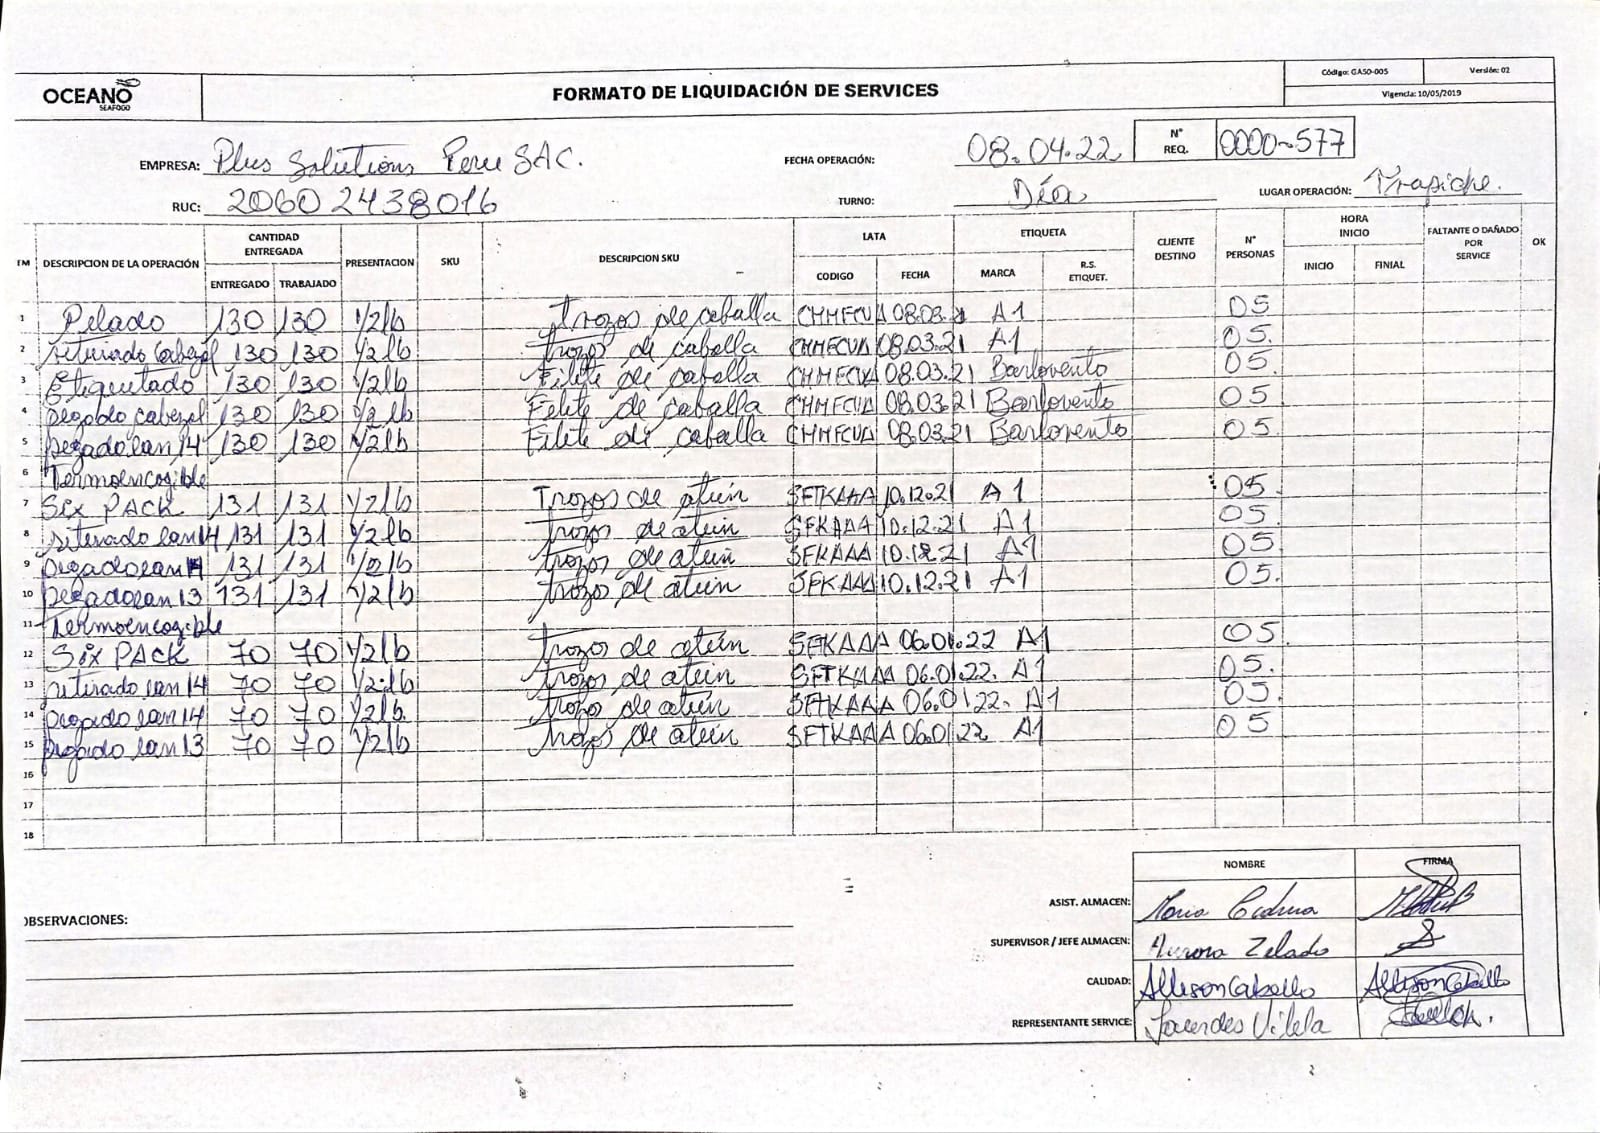 OCEANO SEAFOOD
FORMATO DE LIQUIDACIÓN DE SERVICES
Código: GASO-005 Versión: 02
Vigencia: 10/05/2019
EMPRESA: Plus Solutions Peru SAC. FECHA OPERACIÓN: 08.04.22 N° REQ. 0000-577
RUC: 20602438016 TURNO: Día LUGAR OPERACIÓN: Trapiche.
TM DESCRIPCION DE LA OPERACIÓN CANTIDAD ENTREGADA ENTREGADO TRABAJADO PRESENTACION SKU DESCRIPCION SKU LATA CODIGO FECHA ETIQUETA MARCA R.S. ETIQUET. CLIENTE DESTINO N° PERSONAS HORA INICIO INICIO FINIAL FALTANTE O DAÑADO POR SERVICE OK
1 Pelado 130 130 1/2lb trozos de caballa CHHFCUA 08.03.21 A1 05
2 retirado Cabezal 130 130 1/2lb trozos de caballa CHHFCUA 08.03.21 A1 05.
3 Etiquetado 130 130 1/2lb Filete de caballa CHHFCUA 08.03.21 Barlovento 05.
4 pegado cabezal 130 130 1/2 lb Filete de caballa CHHFCUA 08.03.21 Barlovento 05
5 pegado lan 14 130 130 1/2lb Filete de caballa CHHFCUA 08.03.21 Barlovento 05.
6 Termoencogible
7 Six PACK 131 131 1/2lb Trozos de atún SFTKAAA 10.12.21 A1 05
8 retirado lan 14 131 131 1/2lb trozos de atún SFKAAA 10.12.21 A1 05
9 pegado lan 14 131 131 1/2lb trozos de atún SFKAAA 10.12.21 A1 05
10 pegado lan 13 131 131 1/2lb trozos de atún SFKAAA 10.12.21 A1 05.
11 Termoencogible
12 Six PACK 70 70 1/2lb trozos de atún SFTKAAA 06.01.22 A1 05
13 retirado lan 14 70 70 1/2lb trozos de atún SFTKAAA 06.01.22. A1 05.
14 pegado lan 14 70 70 1/2lb. trozos de atún SFTKAAA 06.01.22. A1 05.
15 pegado lan 13 70 70 1/2lb trozos de atún SFTKAAA 06.01.22 A1 05
16
17
18
NOMBRE FIRMA
ASIST. ALMACEN: Maria
OBSERVACIONES:
SUPERVISOR / JEFE ALMACEN: Aurora Zelado
CALIDAD: Allison Cabello Allison Cabello
REPRESENTANTE SERVICE: Lourdes Vilela